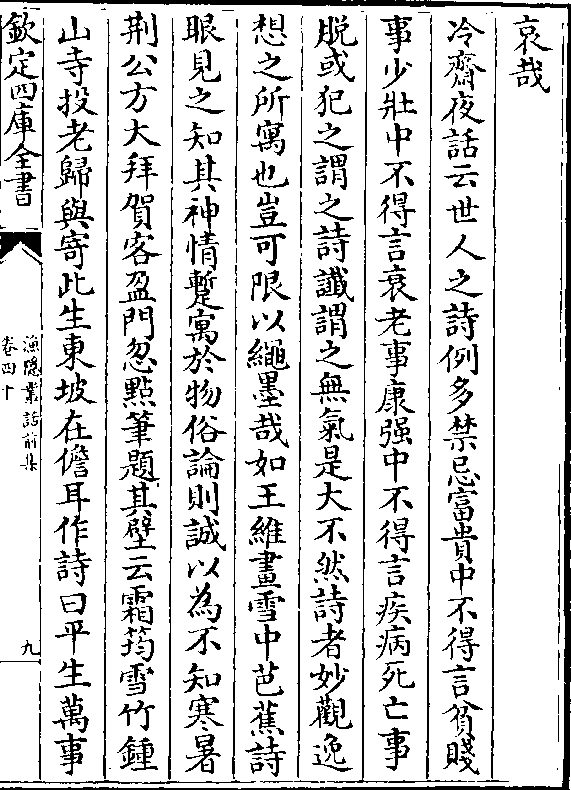 哀哉
冷齋夜話云世人之詩例多禁忌富貴中不得言貧賤
事少壯中不得言衰老事康强中不得言疾病死亡事
脱或犯之謂之詩讖謂之無氣是大不然詩者妙觀逸
想之所寓也豈可限以繩墨哉如王維畫雪中芭蕉詩
眼見之知其神情蹔寓於物俗論則誠以為不知寒暑
荆公方大拜賀客盈門忽㸃筆題其壁云霜筠雪竹鍾
山寺投老歸與寄此生東坡在儋耳作詩曰平生萬事
欽定四庫全書
漁隱叢話前集
卷四十
九